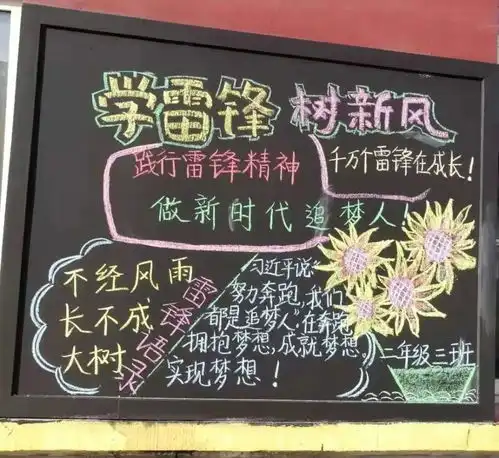 学雷锋 树新风
践行雷锋精神
千万个雷锋在成长!
做新时代追梦人!
不经风雨
长不成
大树
雷锋语录
习近平说“
努力奔跑,我们
都是追梦人”在奔跑
拥抱梦想,成就梦想,
实现梦想!
二年级三班